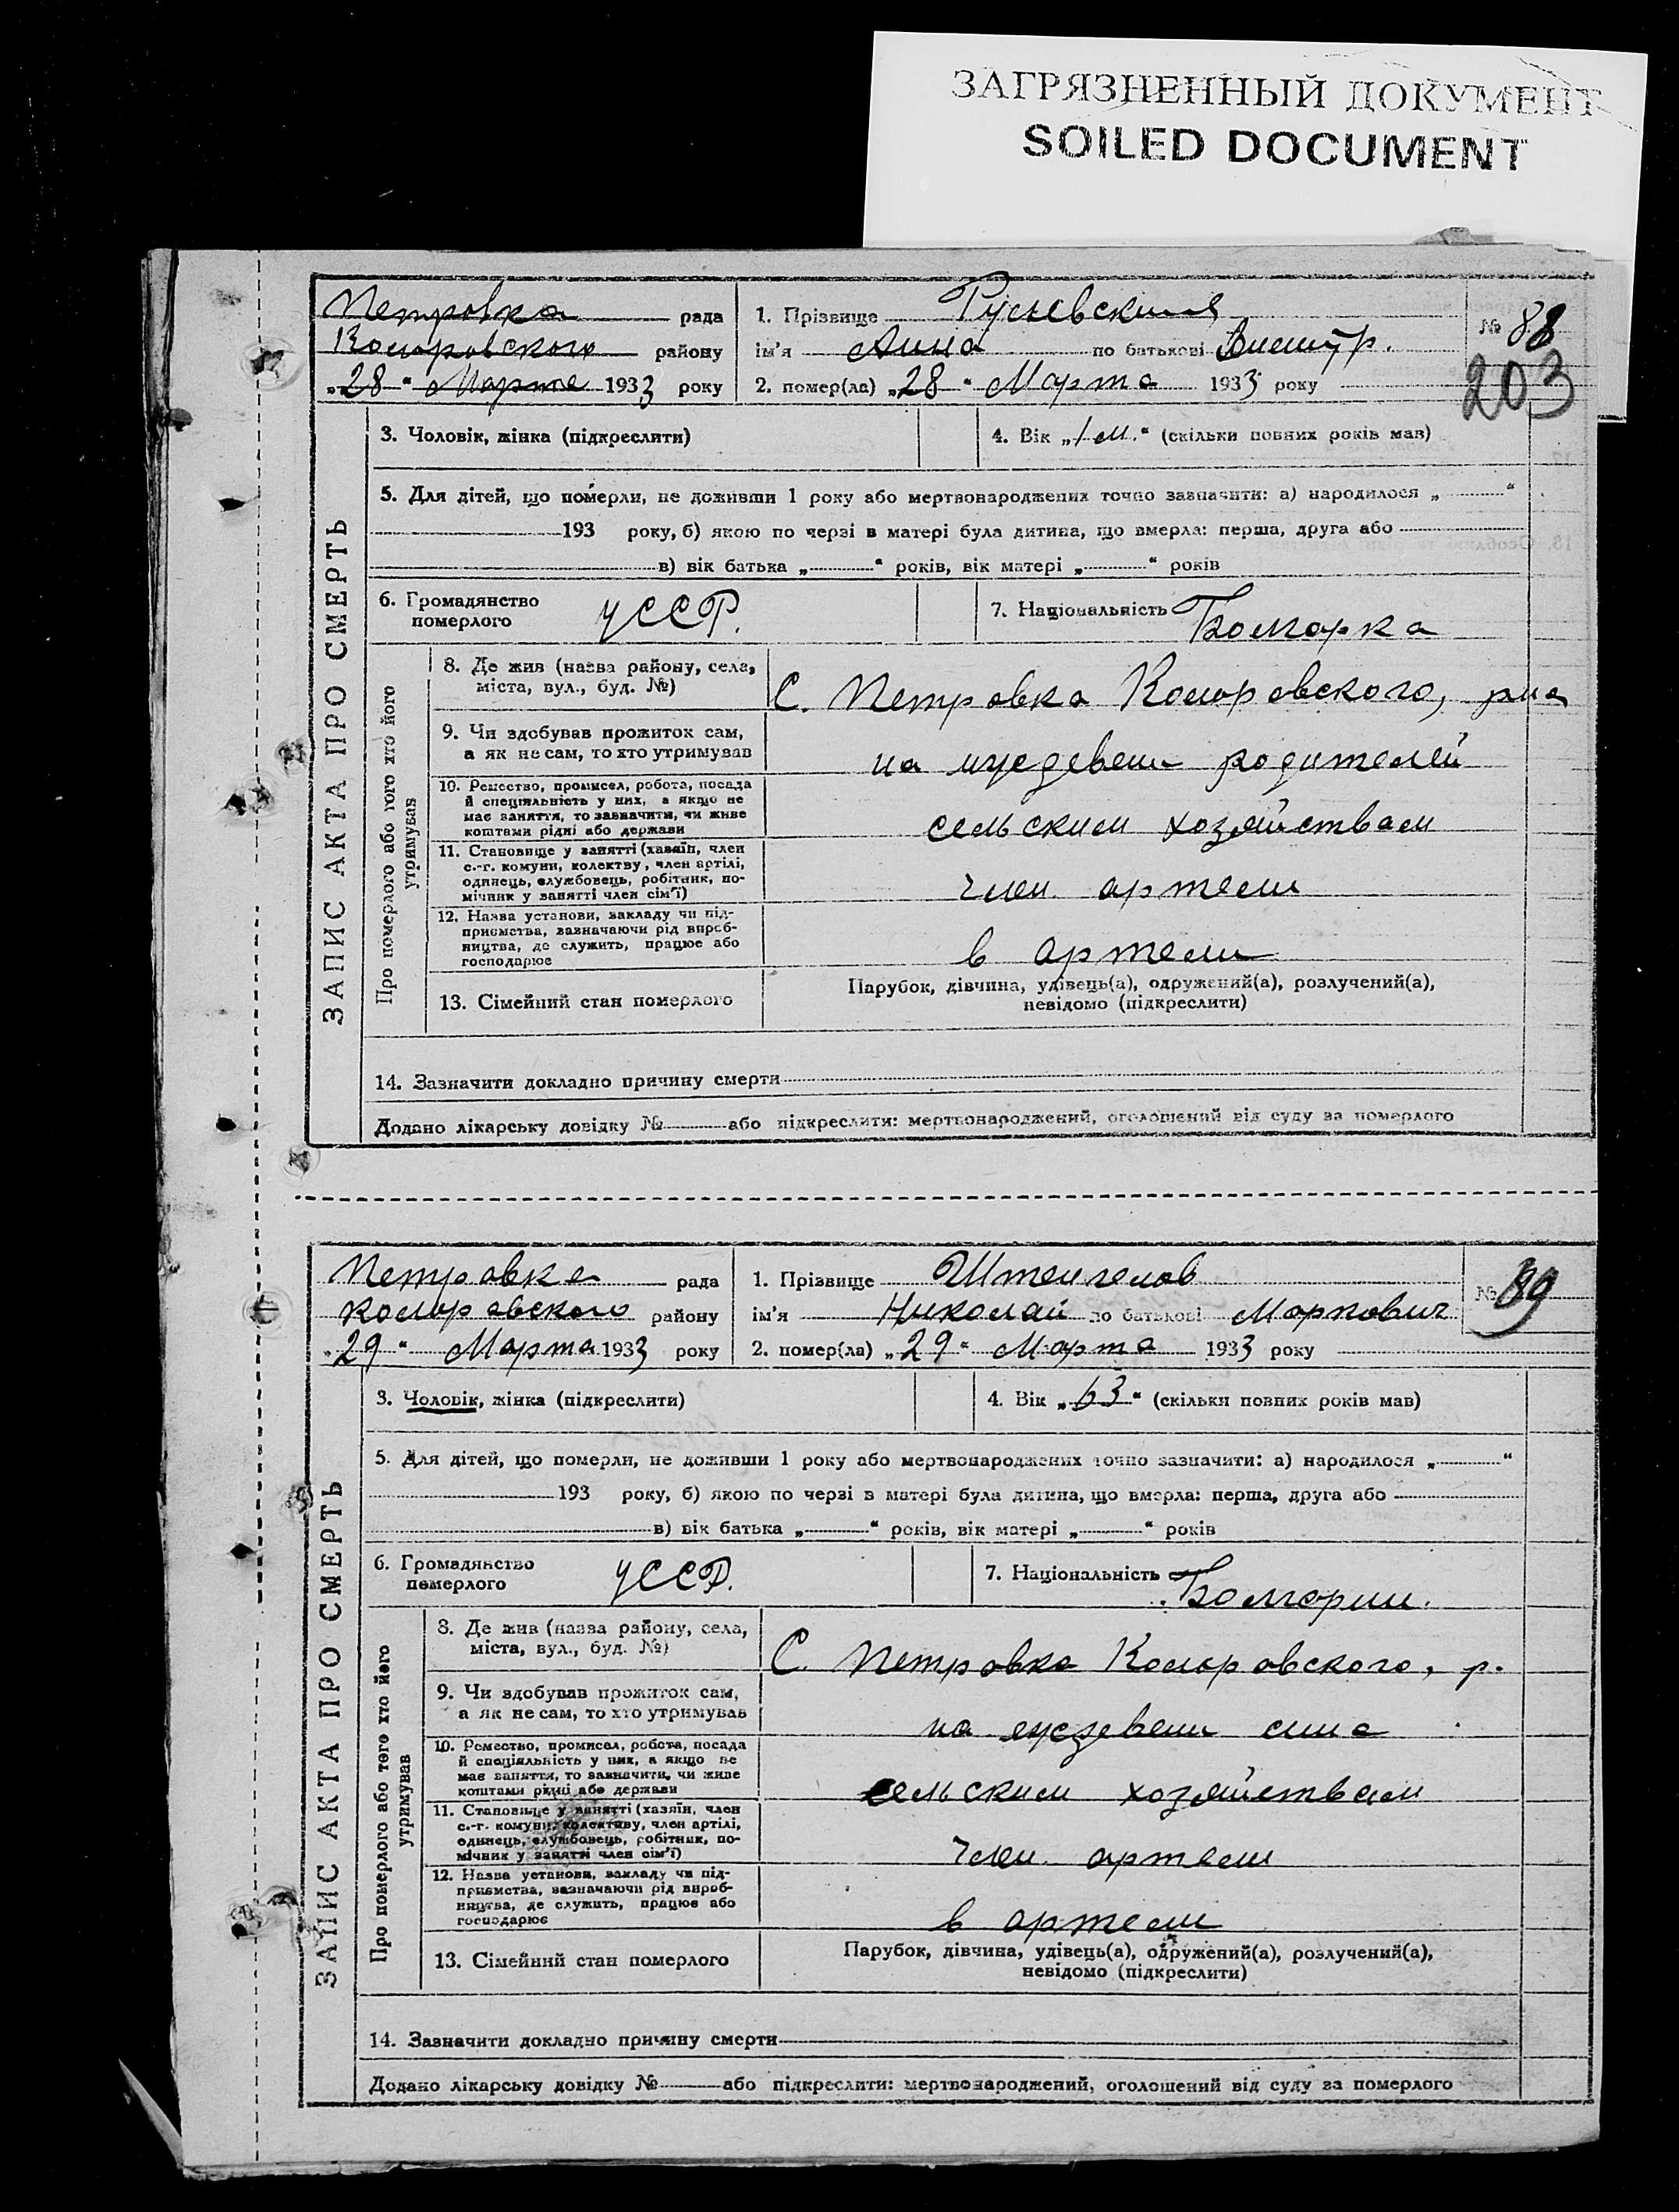 ЗАГРЯЗНЕННЫЙ ДОКУМЕНТ
SOILED DOCUMENT
ЗАПИС АКТА ПРО СМЕРТЬ
Петровка рада
Коларовского району
„28“ Марта 1933 року
1. Прізвище
ім'я Анна по батькові
2. помер(ла) „28“ Марта 1933 року
№ 88
203
3. Чоловік, жінка (підкреслити)
4. Вік „1 м.“ (скільки повних років мав)
5. Для дітей, що померли, не доживши 1 року або мертвонароджених точно зазначити: а) народилося „ “
193 року, б) якою по черзі в матері була дитина, що вмерла: перша, друга або
в) вік батька „ “ років, вік матері „ “ років
6. Громадянство
померлого
УССР.
7. Національність Болгарка
Про померлого або того хто його
утримував
8. Де жив (назва району, села,
міста, вул., буд. №)
С. Петровка Коларовского, рна
9. Чи здобував прожиток сам,
а як не сам, то хто утримував
на иждевени родителей
10. Ремество, промисел, робота, посада
й спеціяльність у них, а якщо не
має заняття, то зазначити, чи живе
коштами рідні або держави
сельским хозяйствам
11. Становище у занятті (хазяїн, член
с.-г. комуни, колективу, член артілі,
одинець, службовець, робітник, по-
мічник у занятті член сім'ї)
член артели
12. Назва установи, закладу чи під-
приємства, зазначаючи рід вироб-
ництва, де служить, працює або
господарює
в артели
13. Сімейний стан померлого
Парубок, дівчина, удівець(а), одружений(а), розлучений(а),
невідомо (підкреслити)
14. Зазначити докладно причину смерти
Додано лікарську довідку № або підкреслити: мертвонароджений, оголошений від суду за померлого
ЗАПИС АКТА ПРО СМЕРТЬ
Петровка рада
Коларовского району
„29“ Марта 1933 року
1. Прізвище Штенгелов
ім'я Николай по батькові Маркович
2. помер(ла) „29“ Марта 1933 року
№ 89
3. Чоловік, жінка (підкреслити)
4. Вік „63“ (скільки повних років мав)
5. Для дітей, що померли, не доживши 1 року або мертвонароджених точно зазначити: а) народилося „ “
193 року, б) якою по черзі в матері була дитина, що вмерла: перша, друга або
в) вік батька „ “ років, вік матері „ “ років
6. Громадянство
померлого
УССР.
7. Національність Болгарин.
Про померлого або того хто його
утримував
8. Де жив (назва району, села,
міста, вул., буд. №)
С. Петровка Коларовского, р.
9. Чи здобував прожиток сам,
а як не сам, то хто утримував
на иждевени сина
10. Ремество, промисел, робота, посада
й спеціяльність у них, а якщо не
має заняття, то зазначити, чи живе
коштами рідні або держави
сельским хозяйствам
11. Становище у занятті (хазяїн, член
с.-г. комуни, колективу, член артілі,
одинець, службовець, робітник, по-
мічник у занятті член сім'ї)
член артели
12. Назва установи, закладу чи під-
приємства, зазначаючи рід вироб-
ництва, де служить, працює або
господарює
в артели
13. Сімейний стан померлого
Парубок, дівчина, удівець(а), одружений(а), розлучений(а),
невідомо (підкреслити)
14. Зазначити докладно причину смерти
Додано лікарську довідку № або підкреслити: мертвонароджений, оголошений від суду за померлого